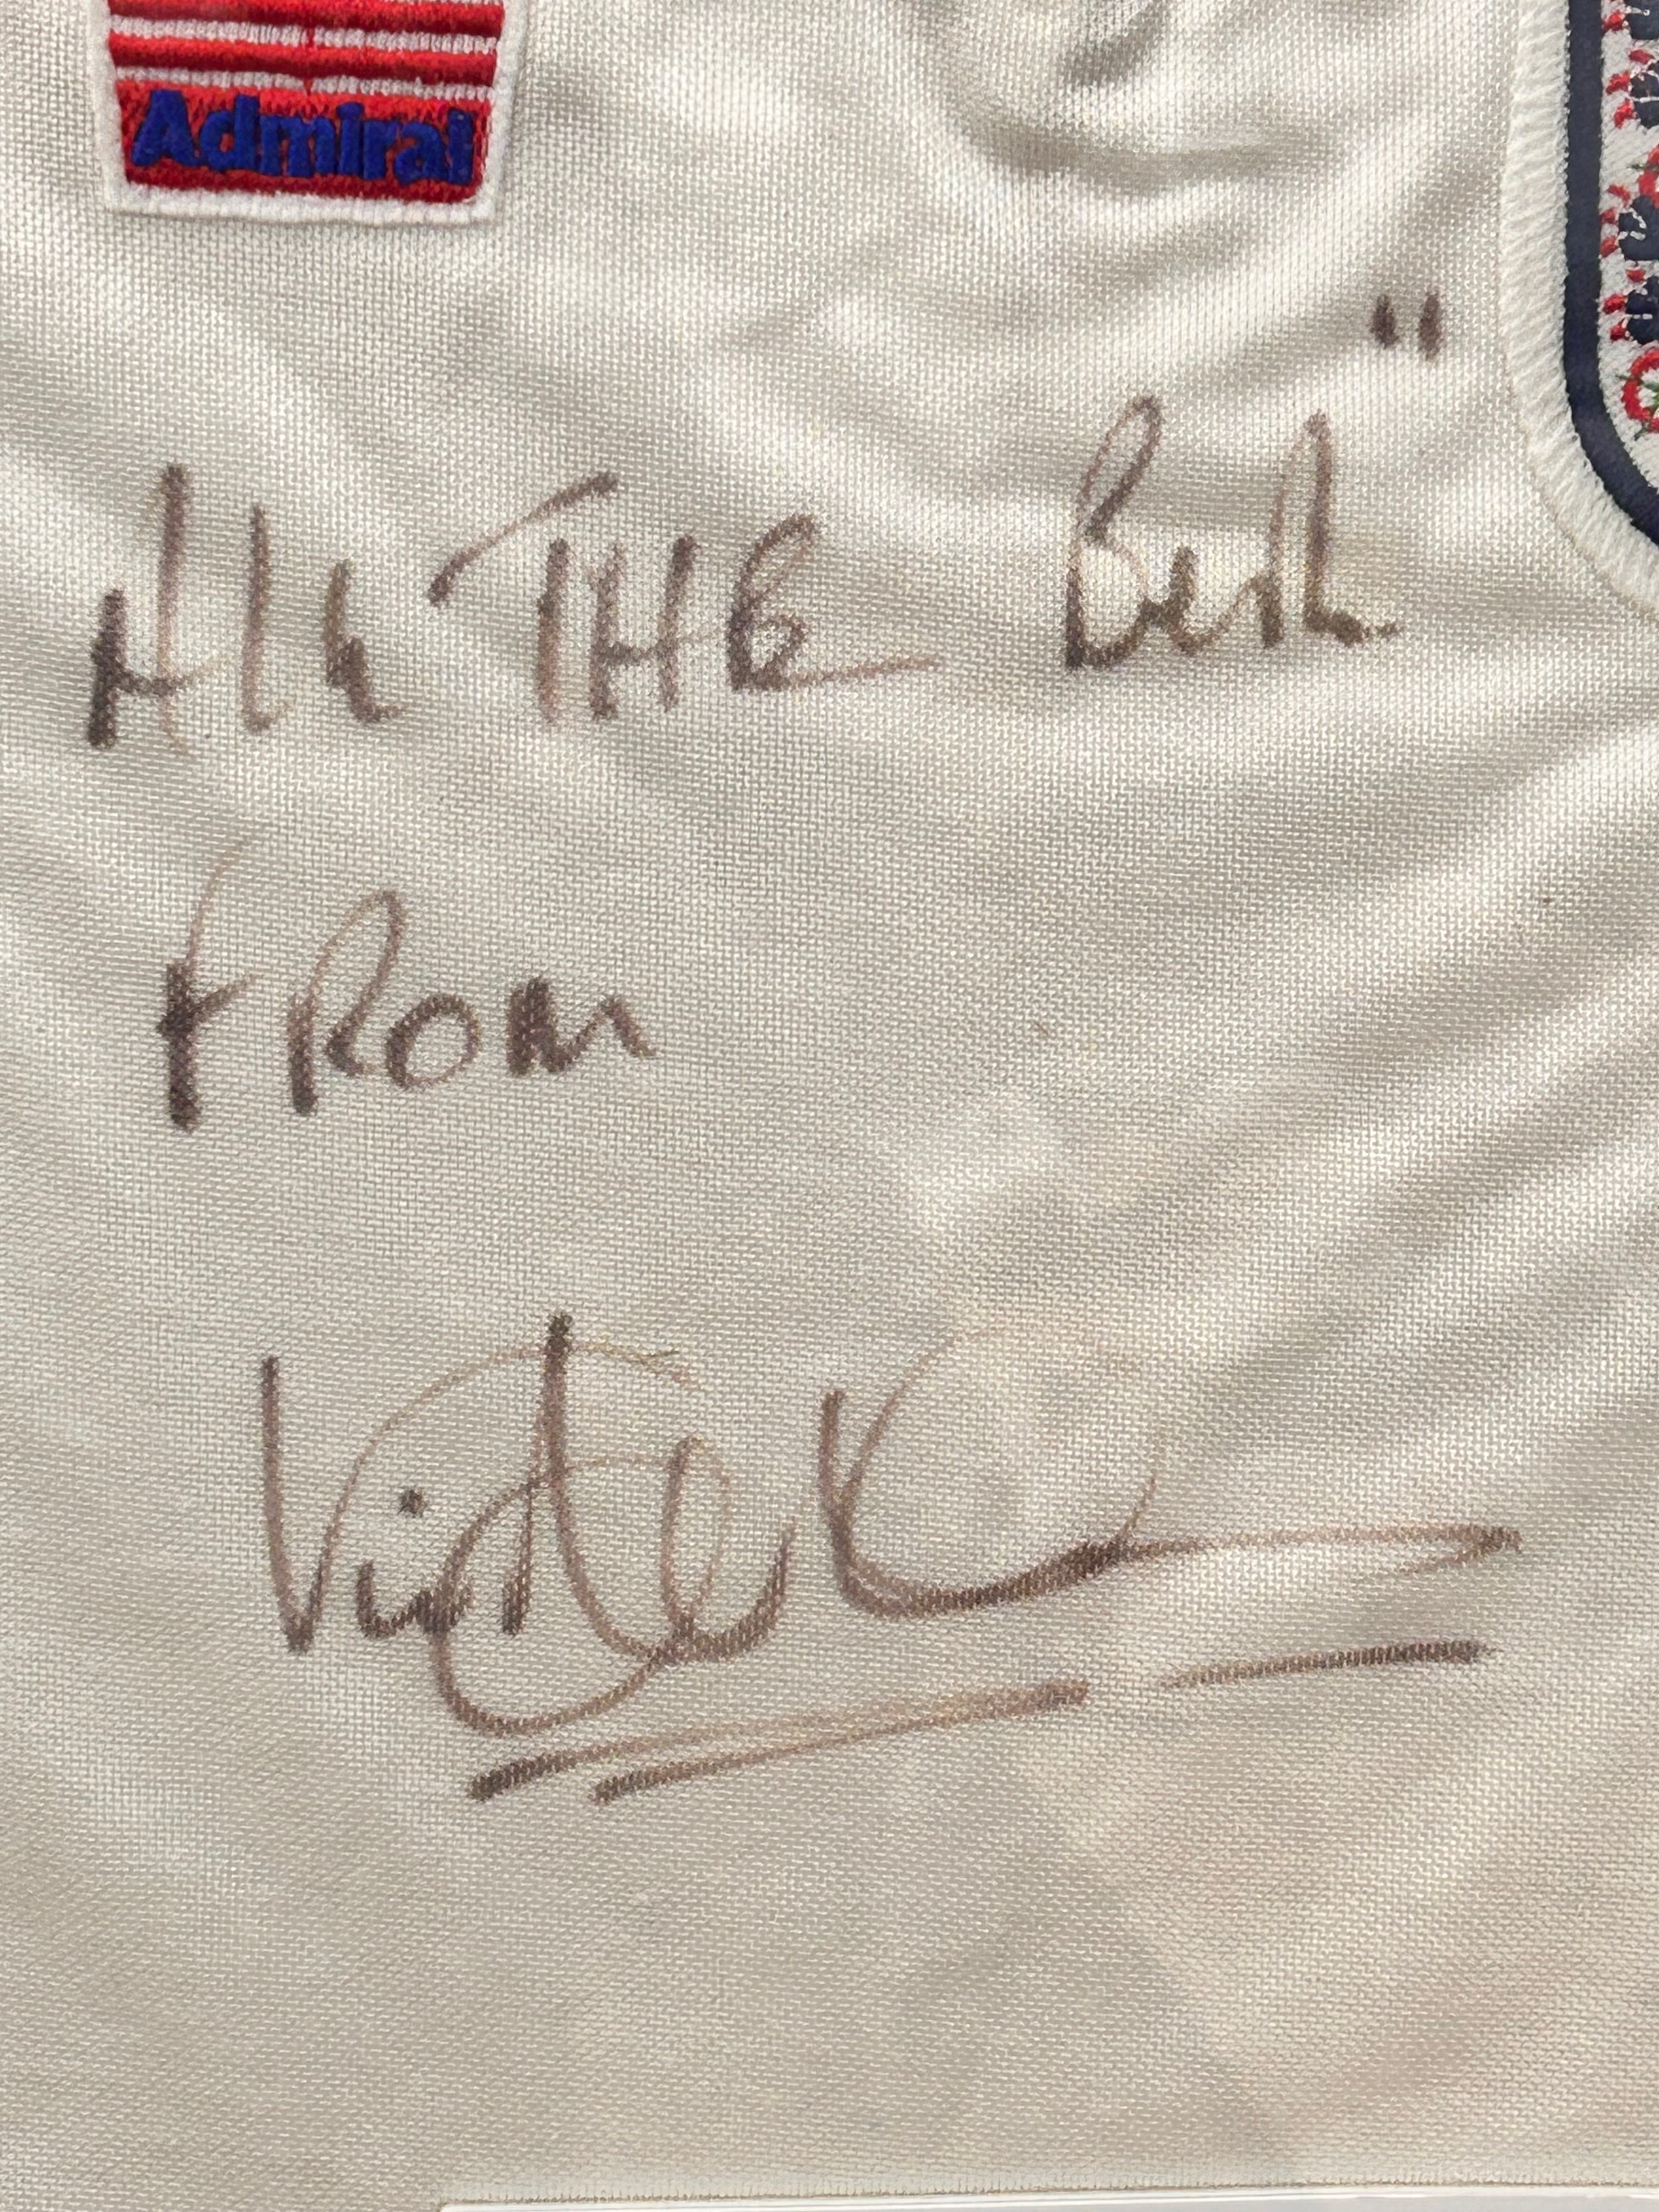 Admiral
"
All THE Best
FROM